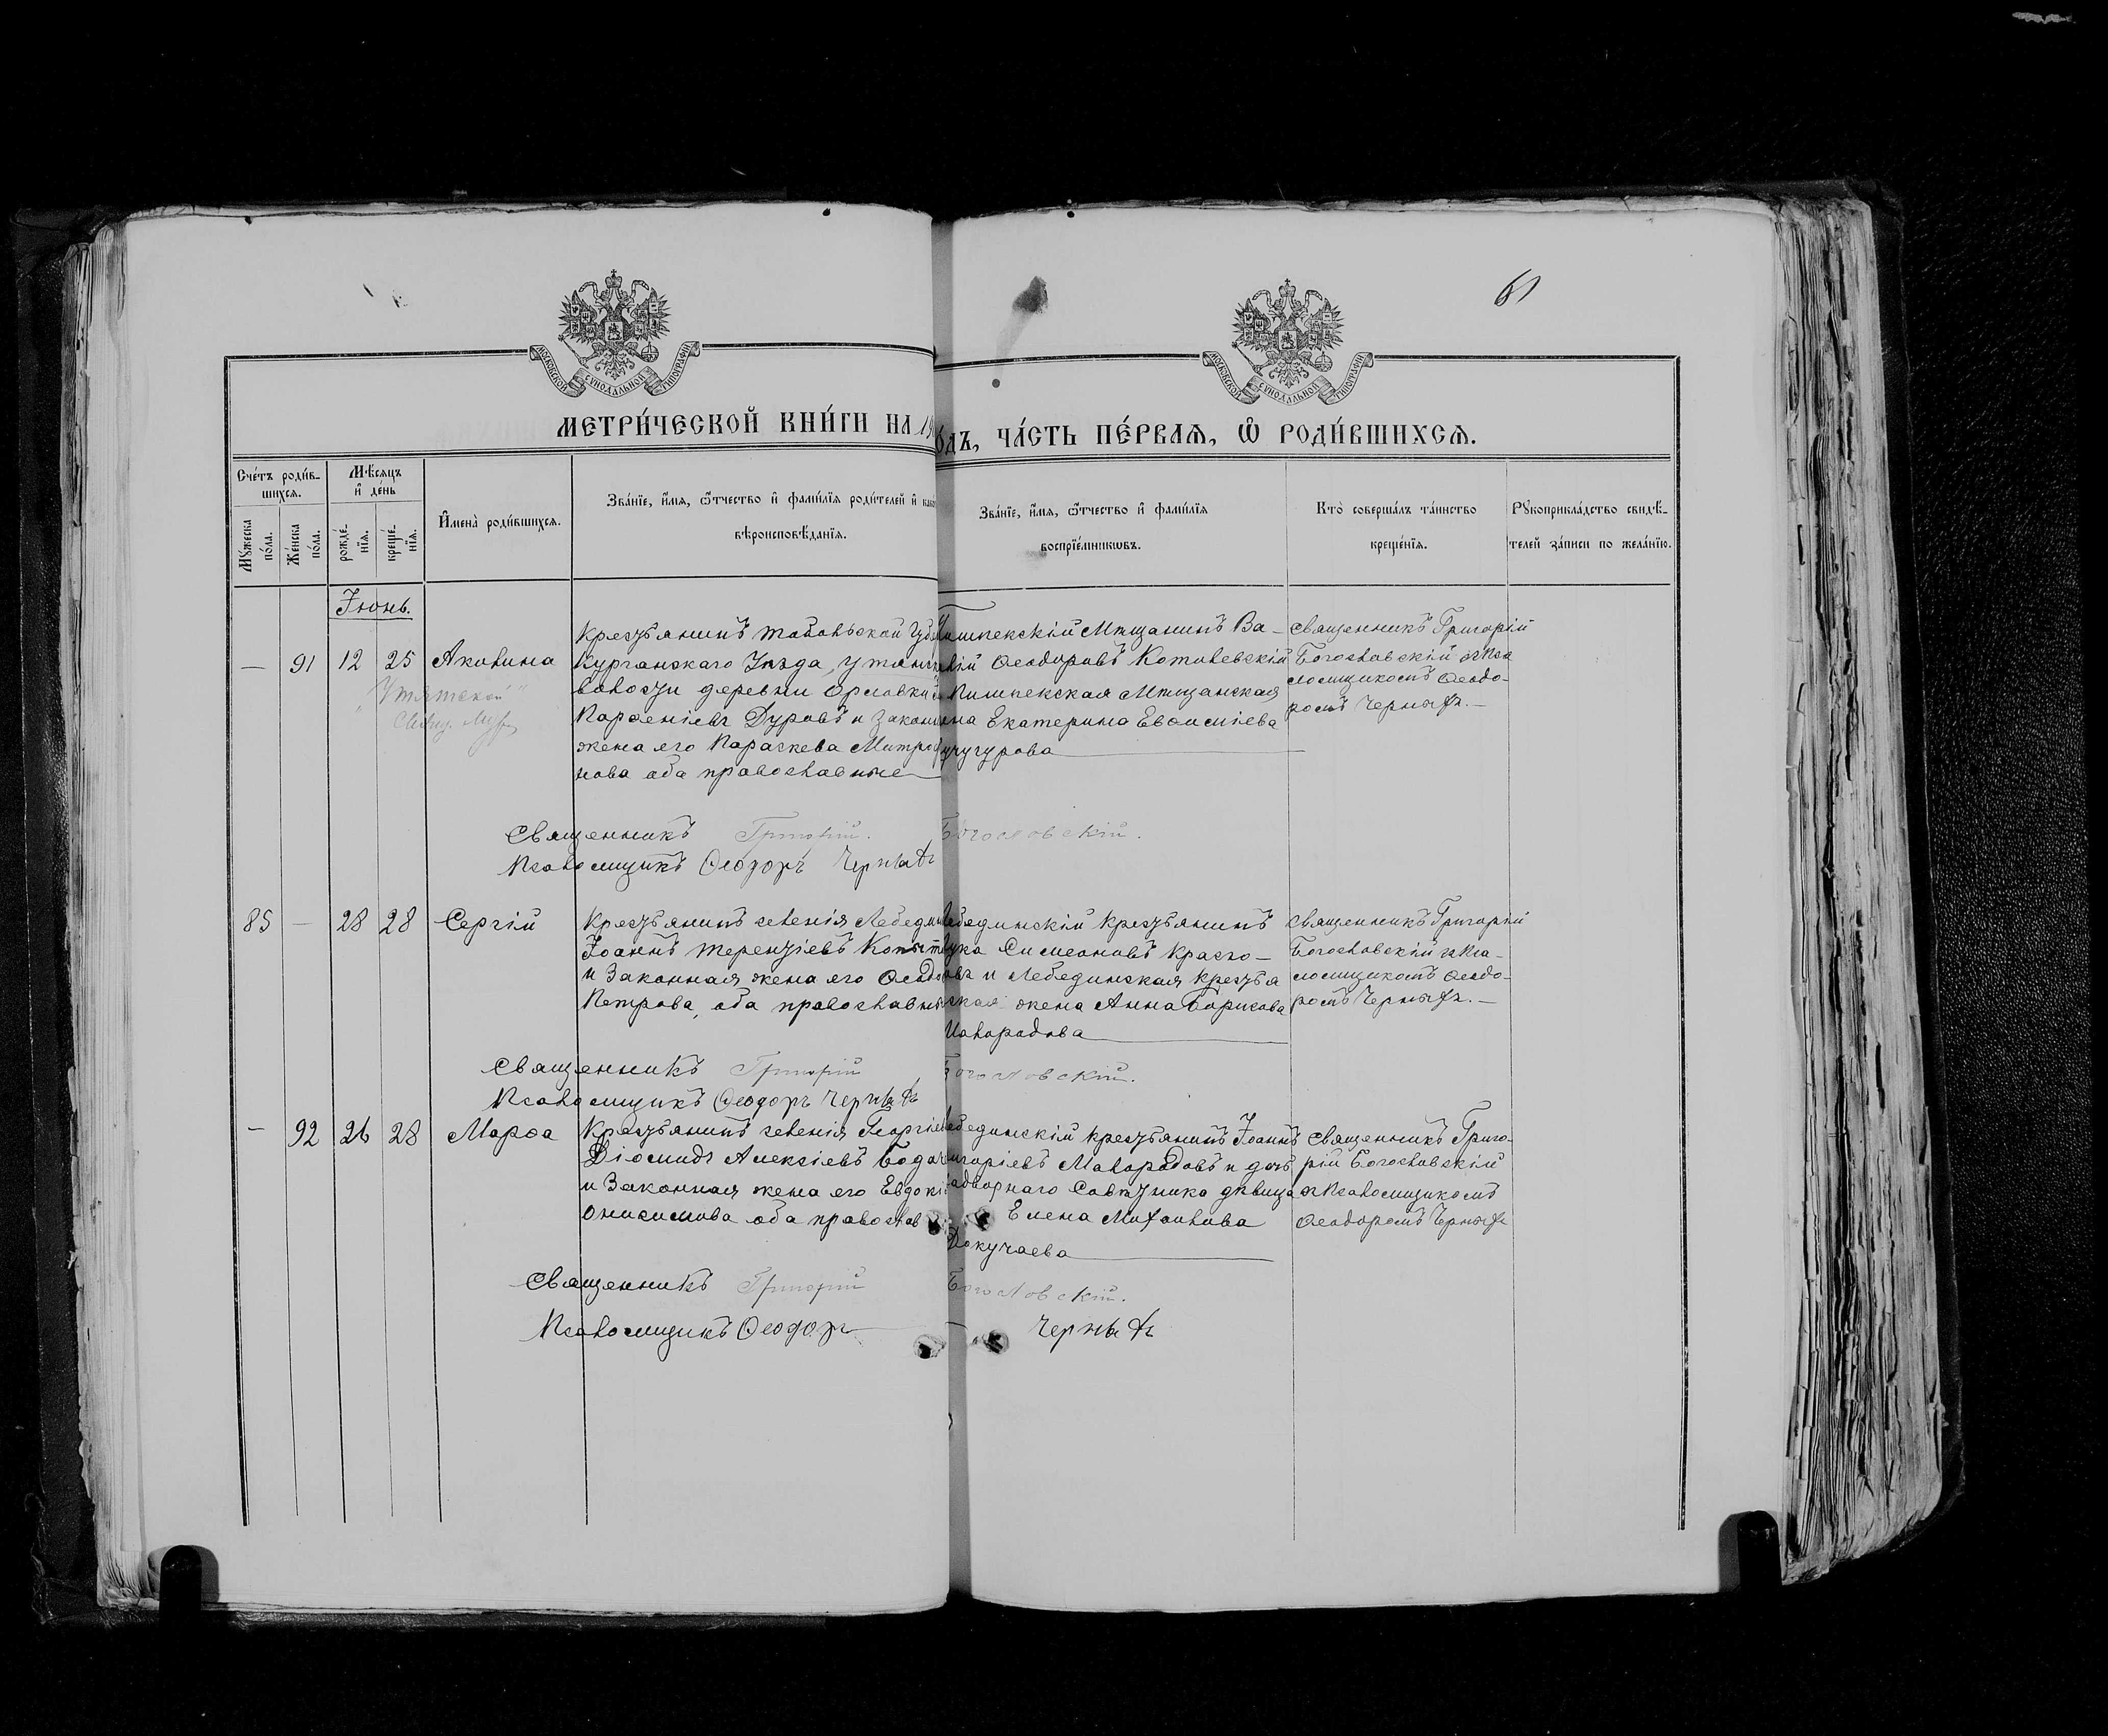 61
МОСКОВСКОЙ СѴНОДАЛЬНОЙ ТИПОГРАФІИ
МОСКОВСКОЙ СѴНОДАЛЬНОЙ ТИПОГРАФІИ
МЕТРИ́ЧЕСКОЙ КНИ́ГИ НА 19
ОДЪ, ЧА́СТЬ ПЕ́РВАЯ, Ѡ РОДИ́ВШИХСЯ.
Сче́тъ роди́в-
шихся.
Мѣсяцъ
и де́нь
Мꙋжеска
по́ла.
Же́нска
по́ла.
рожде́-
нїя.
креще́-
нїя.
Имена̀ роди́вшихся.
Зва́нїе, и́мя, ѻ́тчество и фами́лїя роди́телей и како
вѣроисповѣ́данїя.
Зва́нїе, и́мя, ѻ́тчество и фами́лїя
воспрїе́мникѡвъ.
Кто̀ соверша́лъ та́инство
креще́нїя.
Рꙋкоприкла́дство свидѣ́-
телей за́писи по жела́нїю.
Іюнь.
— 91 12 25 Акилина
Утятской
Крестьянинъ Тобольской Губе
Курганскаго Уѣзда, Утятск
волости деревни Орловки
Парѳеніевъ Дуровъ и закон
жена его Параскева Митроф
нова оба православные
Пишпекскій Мѣщанинъ Ва-
лій Ѳеодоровъ Котилевскій
Пишпекская Мѣщанская
на Екатерина Евѳиміева
учугурова
Священникъ Григорій
Богословскій съ Пса
ломщикомъ Ѳеодо-
ромъ Черныхъ.—
Священникъ Григорій. Богословскій.
Псаломщикъ Ѳеодоръ Черныхъ
85 — 28 28 Сергій
Крестьянинъ селенія Лебедин
Іоаннъ Терентіевъ Копыт
и законная жена его Ѳеодо
Петрова, оба православны
Лебединскій крестьянинъ
ука Симеоновъ Красно-
овъ и Лебединская крестья
ская жена Анна Борисова
Священникъ Григорій
Богословскій съ Пса-
ломщикомъ Ѳеодо-
ромъ Черныхъ.—
Священникъ Григорій Богословскій.
Псаломщикъ Ѳеодоръ Черныхъ
— 92 26 28 Марѳа
Крестьянинъ селенія Георгіев
Діомидъ Алексіевъ Бодач
и законная жена его Евдокі
Онисимова оба православ
Лебединскій крестьянинъ Іоаннъ
игоріевъ Малорадовъ и дочь
адворнаго Совѣтника дѣвица
Елена Михаилова
Докучаева
Священникъ Григо-
рій Богословскій
съ Псаломщикомъ
Ѳеодоромъ Черныхъ
Священникъ Григорій Богословскій.
Псаломщикъ Ѳеодоръ Черныхъ